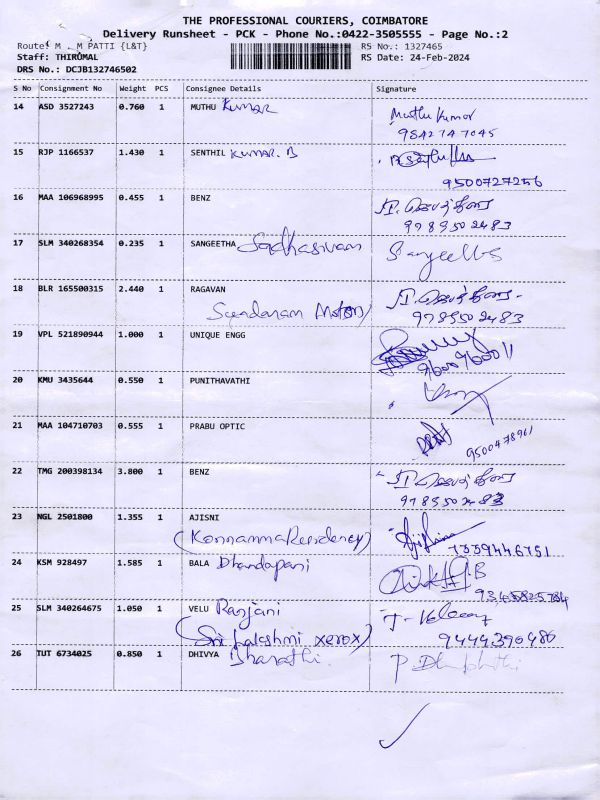 THE PROFESSIONAL COURIERS, COIMBATORE
Delivery Runsheet - PCK - Phone No.:0422-3505555 - Page No.:2
Route: M . M PATTI {L&T} RS No.: 1327465
Staff: THIRUMAL RS Date: 24-Feb-2024
DRS No.: DCJB132746502
S No Consignment No Weight PCS Consignee Details Signature
14 ASD 3527243 0.760 1 MUTHU Kumar Muthu Kumar
9842747045
15 RJP 1166537 1.430 1 SENTHIL KUMAR. B
9500727256
16 MAA 106968995 0.455 1 BENZ
9789502483
17 SLM 340268354 0.235 1 SANGEETHA Sadhasivam Sangeetha
18 BLR 165500315 2.440 1 RAGAVAN
Sundaram Motors 9789502483
19 VPL 521890944 1.000 1 UNIQUE ENGG
9600960011
20 KMU 3435644 0.550 1 PUNITHAVATHI
21 MAA 104710703 0.555 1 PRABU OPTIC
9500478961
22 TMG 200398134 3.800 1 BENZ
9789502483
23 NGL 2501800 1.355 1 AJISNI
(Konnamma Residency) 7339446751
24 KSM 928497 1.585 1 BALA Dhandapani
25 SLM 340264675 1.050 1 VELU Ranjani
(Sri Lakshmi xerox) 9444390486
26 TUT 6734025 0.850 1 DHIVYA Bharathi.